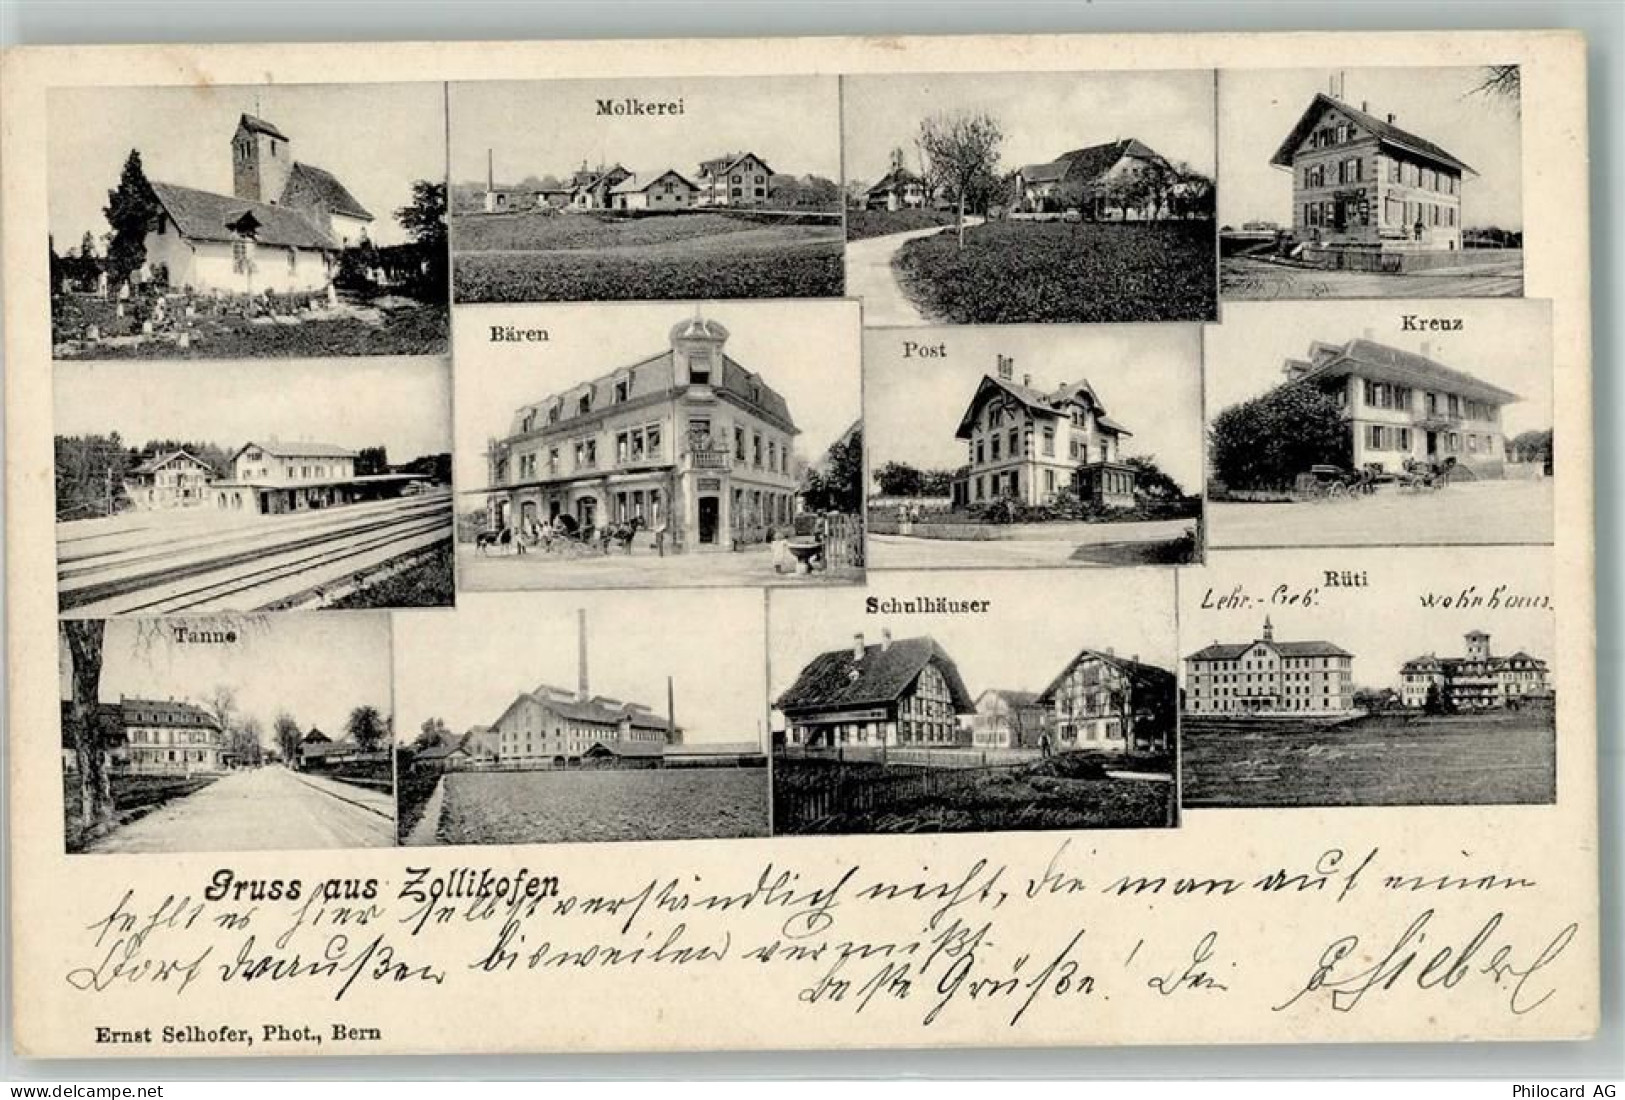 Molkerei
Bären
Post
Kreuz
Tanne
Schulhäuser
Rüti
Lehr.-Geb. Wohnhaus.
Gruss aus Zollikofen
fehlt es hier selbstverständlich nicht, die man auf einen
Dorf draußen bisweilen vermißt.
Beste Grüße! Dein
Ernst Selhofer, Phot., Bern
www.delcampe.net
philocardch
Philocard AG